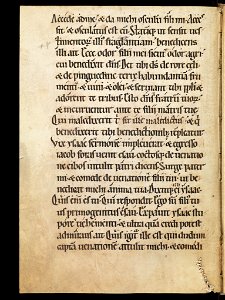 Accede ad me & da michi osculū fili mi. Acces
sit & osculatus est eū. Statimq; ut sensit ves
timentoꝝ illiꝰ fraglantiam: benedicens
illi ait. Ecce odor filii mei sicut odor agri
cui benedixit dn̄s. Det tibi ds̄ de rore celi
& de pinguedine terre habundantiā fru
menti & uini & olei & seruiant tibi ppl̄i &
adorent te tribus. Esto dn̄s fratrū tuoꝝ
& incuruentur ante te filii matris tue.
Qui maledixerit t sit ille maledictus & q̇
benedixerit tibi benedictionibꝫ repleatur
Vix ysaac sermonē impleuerat & egresso
iacob foras uenit esau coctosq; de uenatio
ne cibos intulit patri dicens. Surge pater
mi & comede de uenatione filii tui ut be
nedicat michi anima tua. Dixitq; ei ysaac.
Quis enī es tu? Qui respondit. Ego sū filiꝰ tu
us primogenitus esau. Expauit ysaac stu
pore uehementi & ultra quā credi potest
admirans ait. Quis igit᷑ ille est qui dudū
captā uenationē attulit michi & comedi